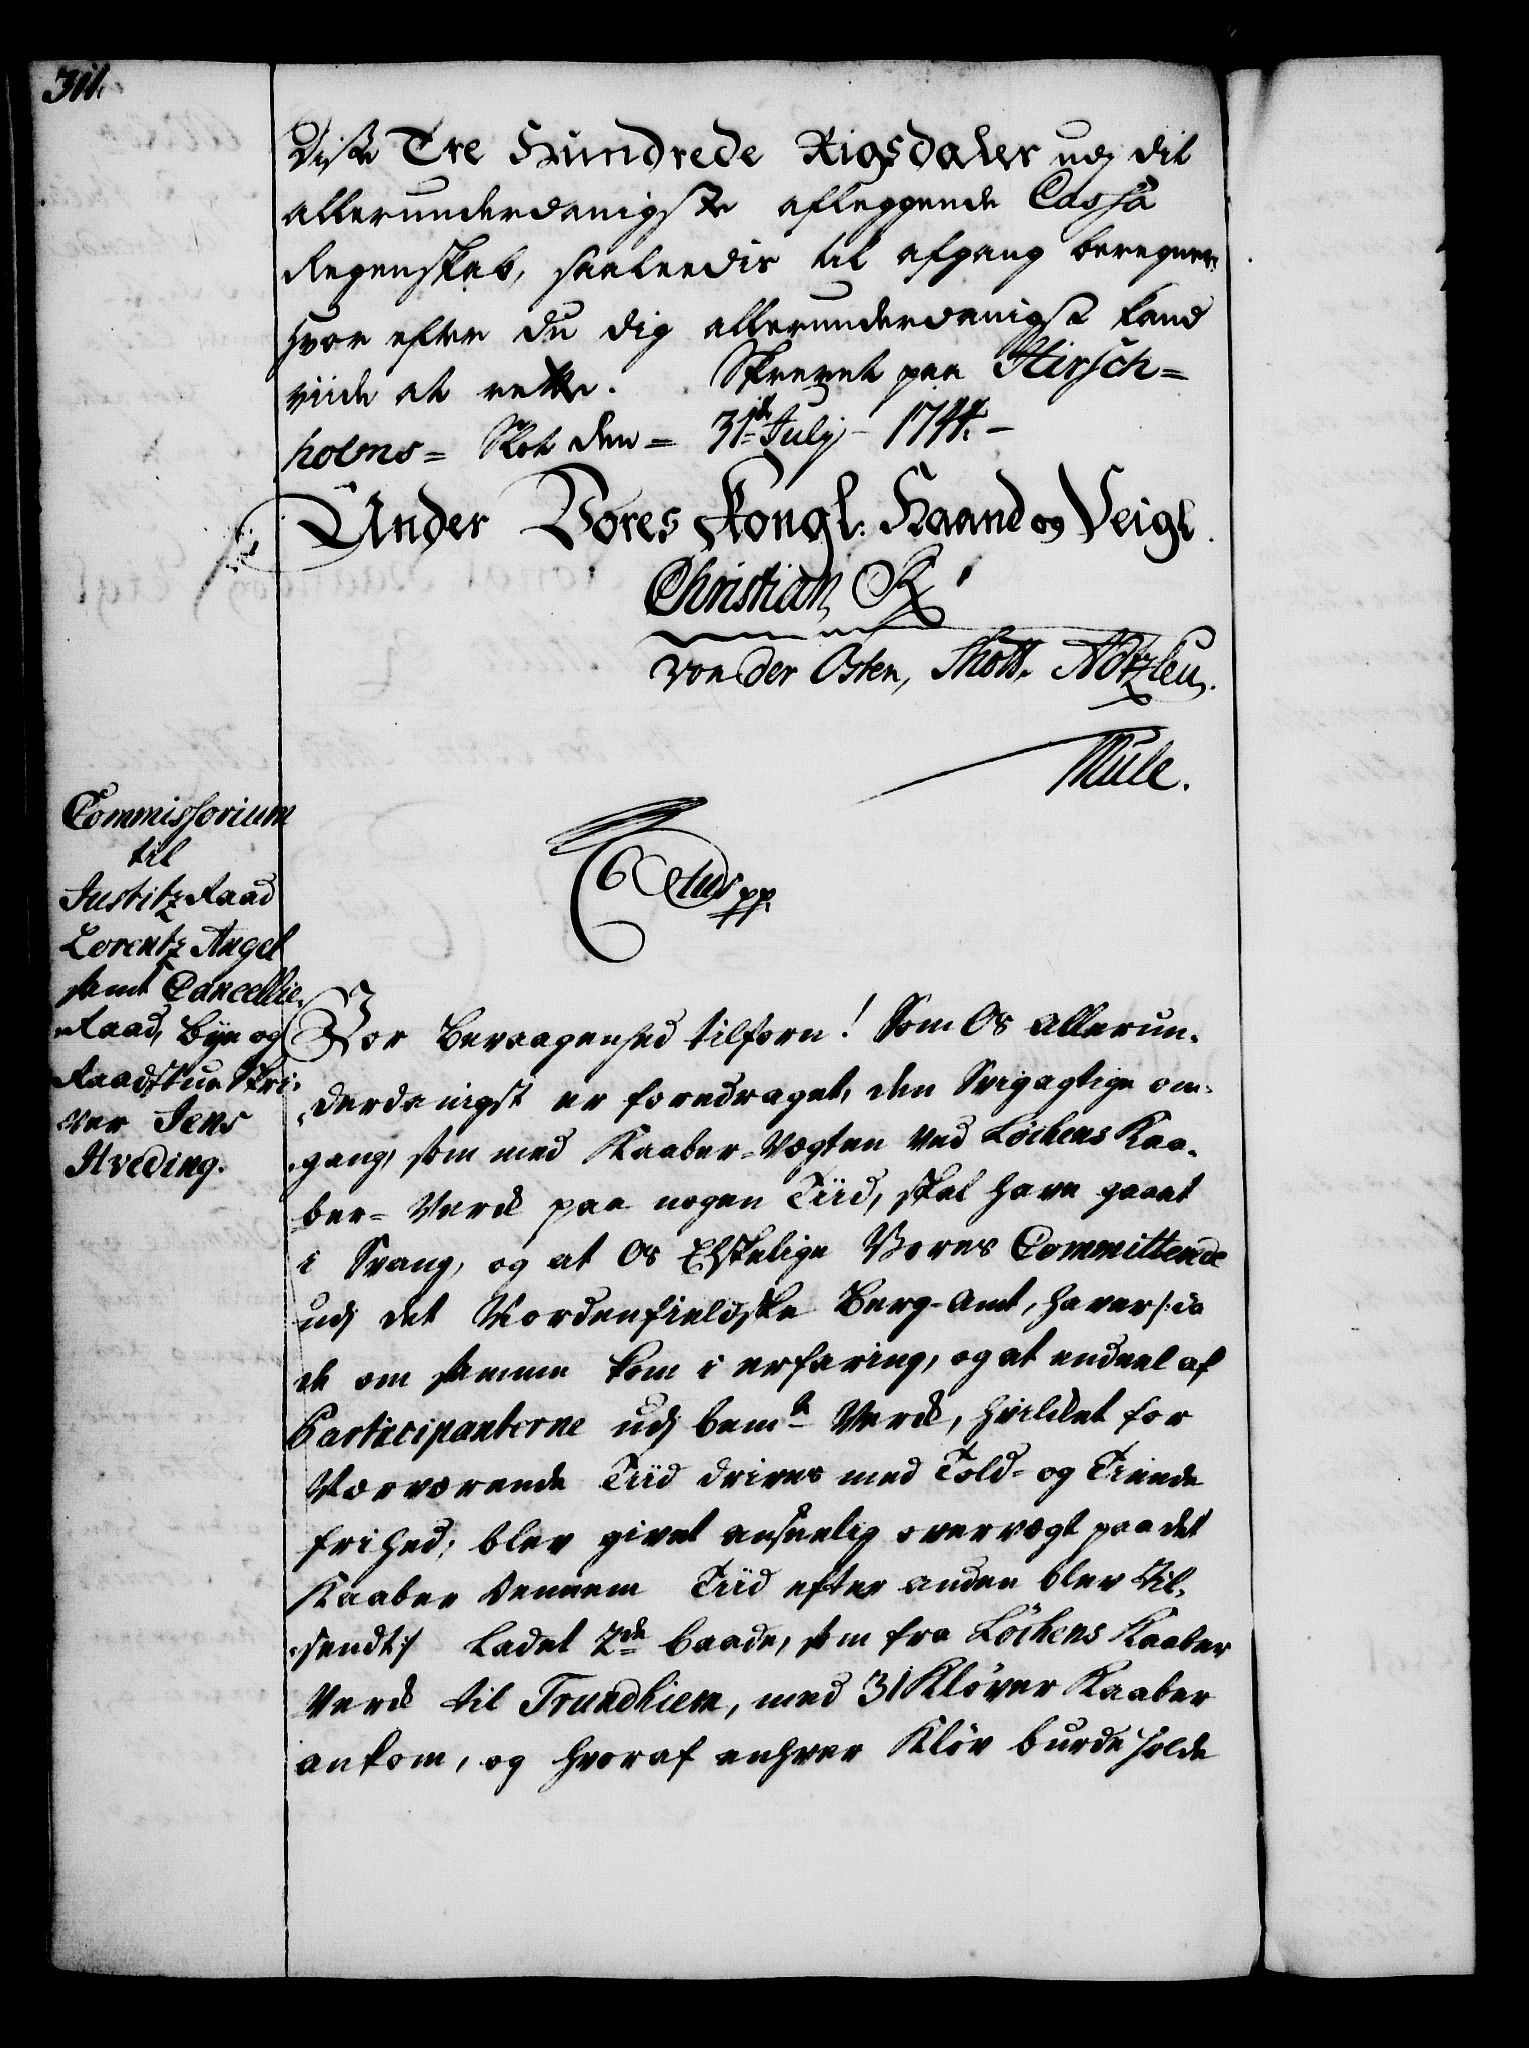 311.
Diste Tre Hundrede Rigsdaler udj dit
allerunderdanigste aflæggende Cassa
Regenskab, saaledis til afgang beregner,
hvor efter du dig allerunderdanigst kand
viide at rette. Skrevet paa Hirsch=
holms= Slot den= 31te July 1744.
Under Vores Kongl: Haand og Seigl.
Christian R
von der Osten, Thott. Nötzleu.
Mule.
Commissorium
til
Justitz Raad
Lorentz Angel
samt Cancellie
Raad, Bye og
Raadstue Skri-
ver Jens
Hveding.
Titus pp.
Vor Bevaagenhed tilforn! Som Os allerun-
derdanigst er foredraget, den Svigagtige om-
gang, som med Kaaber-Vegten ved Löchens Kaa-
ber= Verk paa nogen Tiid, skal have gaaet
i Svang, og at Os Elskelige Vores Committerede
udj det Nordenfieldske Berg-Amt, haver /: da
de om samme kom i erfaring, og at endeel af
Participanterne udj bemte Verk, hvilket for
Nærværende Tiid drives med Told- og Tiende
frihed, blev givet anseelig overvegt paa det
Kaaber dennem Tiid efter anden blev til-
sendt :/ Ladet 2de baade, som fra Löchens Kaaber
Verk til Trundhiem, med 31 Klöver Kaaber
ankom, og hvoraf enhver Klöv burde holde